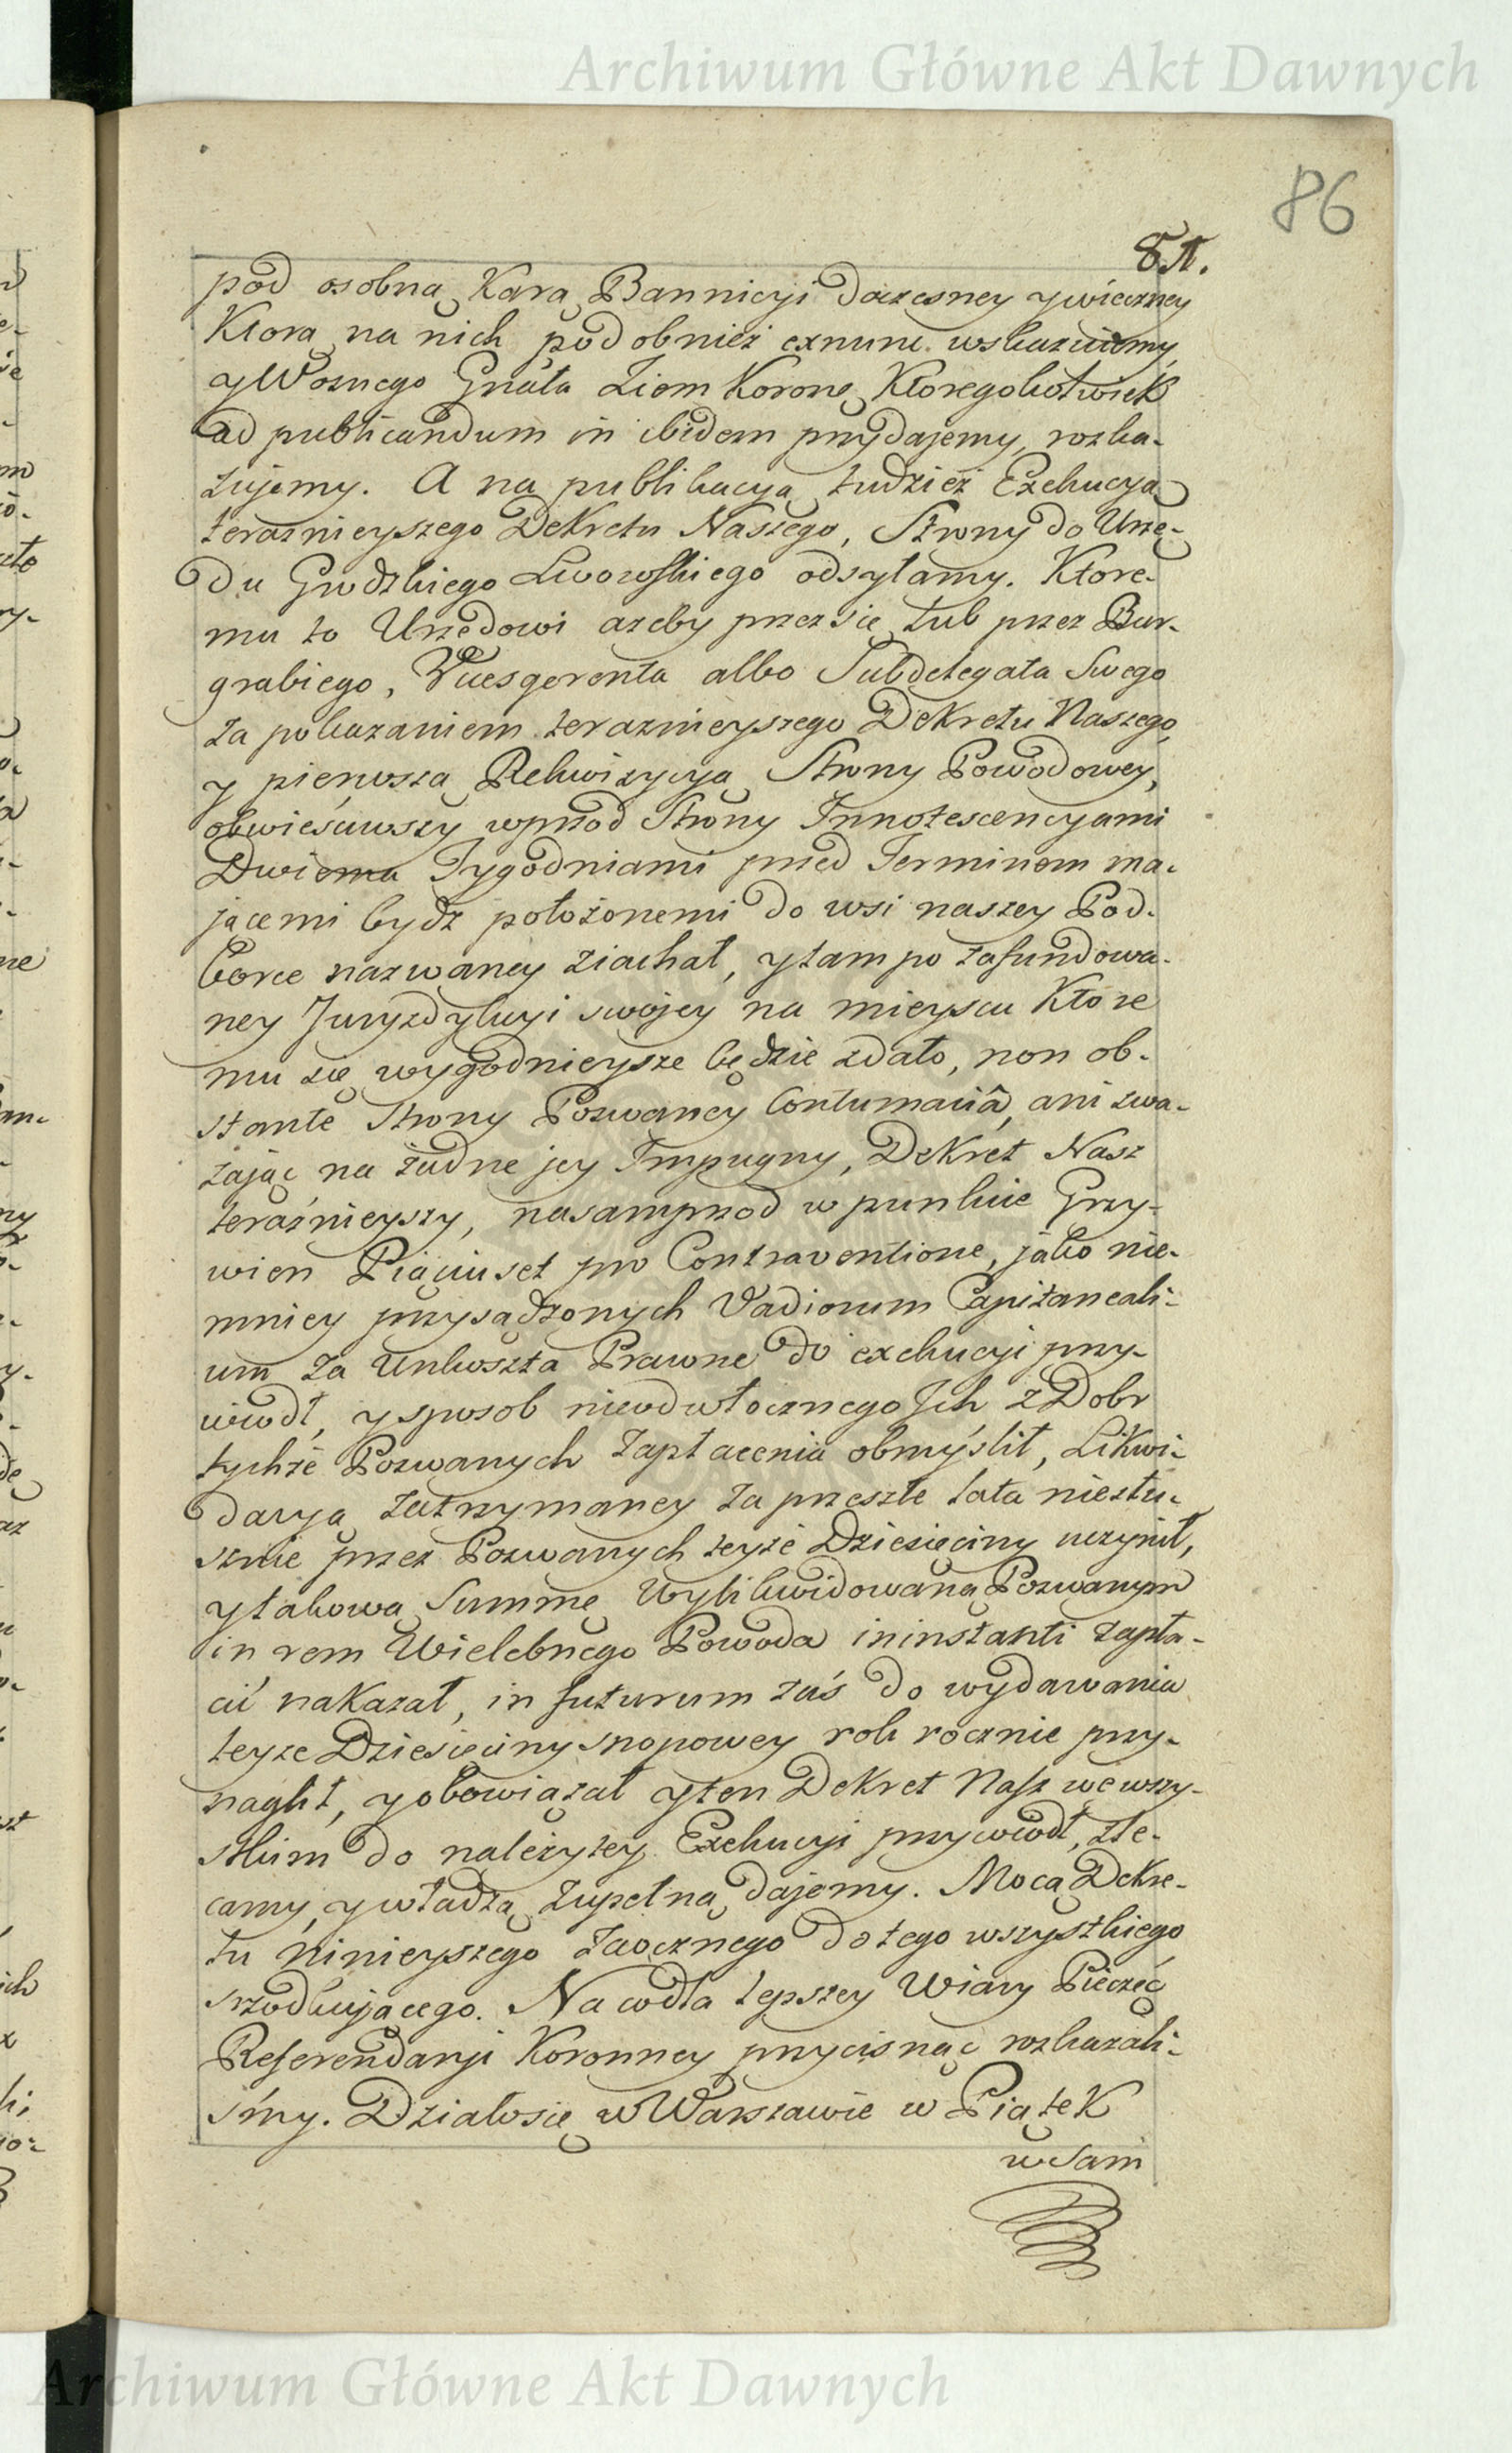 Archiwum Główne Akt Dawnych
86
pod osobną Karą Bannicyi doczesney y wieczney
Ktorą na nich podobnież exnunc wskazuiemy,
y Woznego Gnãla Ziem Koronę Ktoregokolwiek
ad publicandum in ibidem przydajemy, rozka-
zujemy. A na publikacyą tudzież Exekucyą
teraznieyszego Dekretu Naszego, Strony do Urzę-
du Grodzkiego Lwowskiego odsyłamy. Ktore-
mu to Urzędowi ażeby przez się lub przez Bur-
grabiego, Vicesgerenta albo Subdelegata Swego
za pokazaniem teraznieyszego Dekretu Naszego,
y pierwszą Rekwizycyą Strony Powodowey,
obwieściwszy wprzod Strony Innotescencyami
Dwiema Tygodniami przed Terminem ma-
jącemi bydz położonemi do wsi naszey Pod-
borce nazwaney ziachał, y tam po zafundowa-
ney Juryzdykcyi swojey na mieyscu Ktore
mu się wygodnieysze będzie zdało, non ob-
stante Strony Pozwaney Contumaciâ, ani zwa-
żając na żadne jey Impugny, Dekret Nasz
teraźnieyszy, nasamprzod w punkcie Grzy-
wien Pięciuset pro Contraventione, jako nie-
mniey przysądzonych Vadiorum Capitaneali-
um za Unkoszta Prawne do exekucyi przy-
wiodł, y sposob nieodwłocznego Jch z Dobr
tychże Pozwanych zapłacenia obmyślił, Likwi-
dacyą zatrzymaney za przeszłe lata niesłu-
sznie przez Pozwanych teyże Dziesięciny uczynił,
y takową Summę wylikwidowaną Pozwanym
in rem Wielebnego Powoda in instanti zapła-
cić nakazał, in futurum zaś do wydawania
teyże Dziesięciny snopowey rok rocznie przy-
naglił, y obowiązał y ten Dekret Nasz we wszy-
stkim do należytey Exekucyi przywiodł, zle-
camy, y władzą zupełną dajemy. Mocą Dekre-
tu ninieyszego zaocznego do tego wszystkiego
srzodkującego. Na co dla lepszey Wiary Pieczęć
Referendaryi Koronney przycisnąć rozkazali-
śmy. Działo się w Warszawie w Piątek
w sam
Archiwum Główne Akt Dawnych